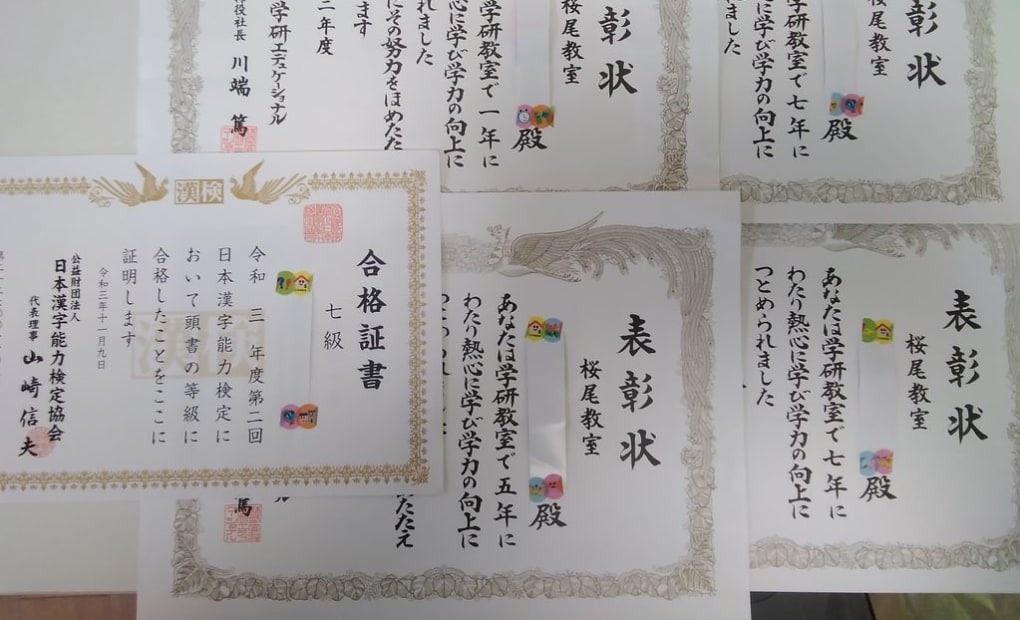 彰状
桜尾教室
殿
学研教室で七年に
に学び学力の向上に
ました
彰状
桜尾教室
殿
学研教室で一年に
心に学び学力の向上に
れました
にその努力をほめた
ます
二年度
学研エデュケーショナル
役社長 川端 篤
表彰状
桜尾教室
殿
あなたは学研教室で七年に
わたり熱心に学び学力の向上に
つとめられました
表彰状
桜尾教室
殿
あなたは学研教室で五年に
わたり熱心に学び学力の向上に
たたえ
ル
篤
漢検
合格証書
七級
令和三年度第二回
日本漢字能力検定に
おいて頭書の等級に
合格したことをここに
証明します
漢検
令和三年十一月九日
公益財団法人
日本漢字能力検定協会
代表理事 山崎信夫